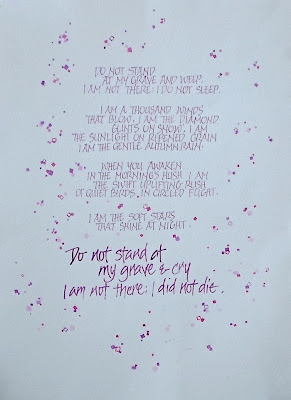 DO NOT STAND
AT MY GRAVE AND WEEP.
I AM NOT THERE: I DO NOT SLEEP.
I AM A THOUSAND WINDS
THAT BLOW. I AM THE DIAMOND
GLINTS ON SNOW. I AM
THE SUNLIGHT ON RIPENED GRAIN
I AM THE GENTLE AUTUMN RAIN.
WHEN YOU AWAKEN
IN THE MORNING'S HUSH I AM
THE SWIFT UPLIFTING RUSH
OF QUIET BIRDS IN CIRCLED FLIGHT.
I AM THE SOFT STARS
THAT SHINE AT NIGHT.
Do not stand at
my grave & cry
I am not there: I did not die.